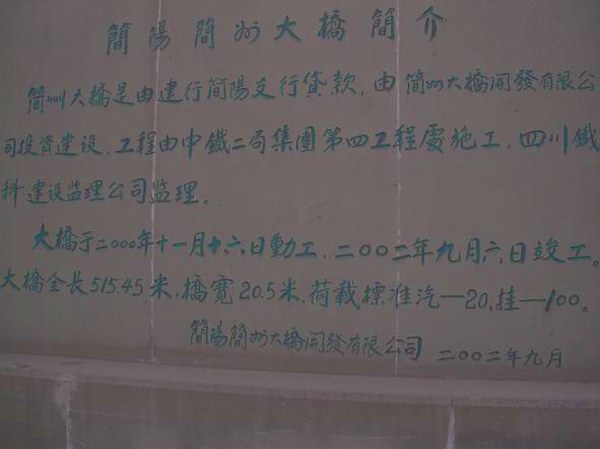 簡陽簡州大橋簡介
簡州大橋是由建行简陽支行貸款,由簡州大橋開發有限公
司投資建設.工程由中鐵二局集團第四工程處施工,四川鐵
科建设监理公司监理。
大橋于二000年十一月十六日動工,二00二年九月六日竣工。
大橋全长515.45米,橋寬20.5米,荷载標准汽—20,挂—100。
簡陽簡州大橋開發有限公司 二00二年九月